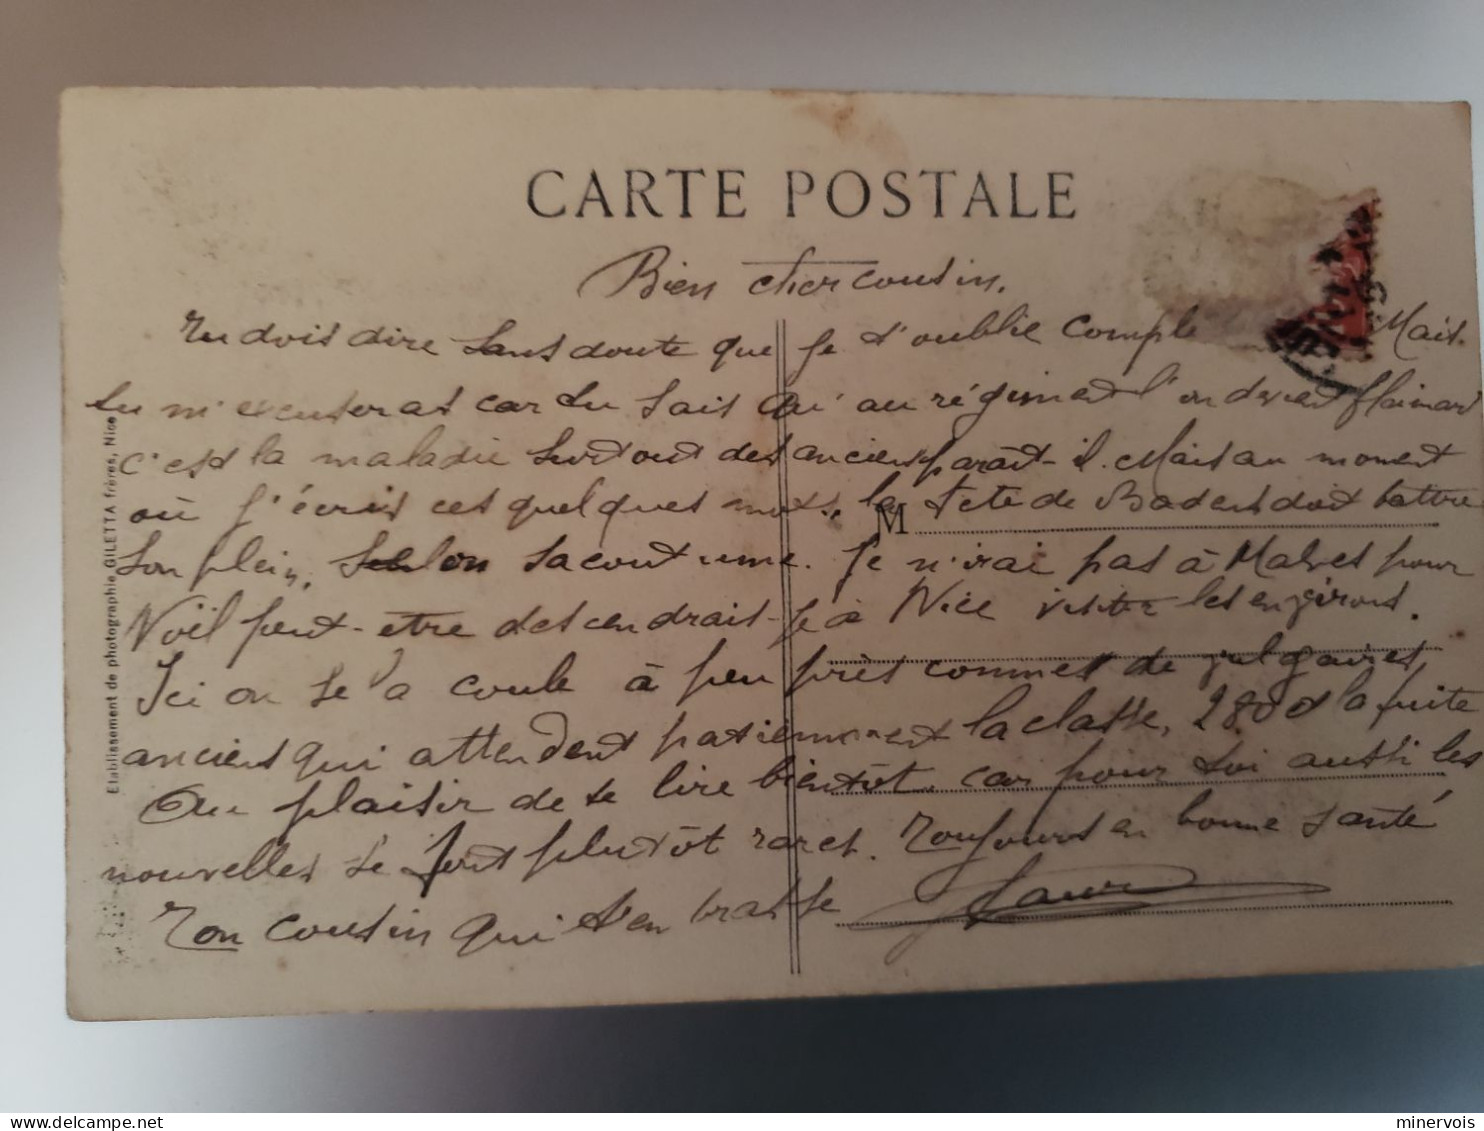 CARTE POSTALE
Bien cher cousin.
Tu dois dire sans doute que je t'oublie comple Mais.
tu m'excuseras car tu sais qu'au régiment l'on devient flaimard
c'est la maladie surtout des anciens parait-il. Mais au moment
où j'écris ces quelques mots, la fête de Badens doit battre
M
son plein, selon sa coutume. Je n'irai pas à Malves pour
Noël peut-etre descendrais-je à Nice visiter les environs.
Ici on se la coule à peu près commes de
anciens qui attendent patiemment la classe, 280 et la fuite
Au plaisir de te lire bientôt, car pour toi aussi les
nouvelles se font plutôt rares. Toujours en bonne santé
Ton cousin qui t'en brasse
Etablissement de photographie GILETTA frères, Nice
minervois